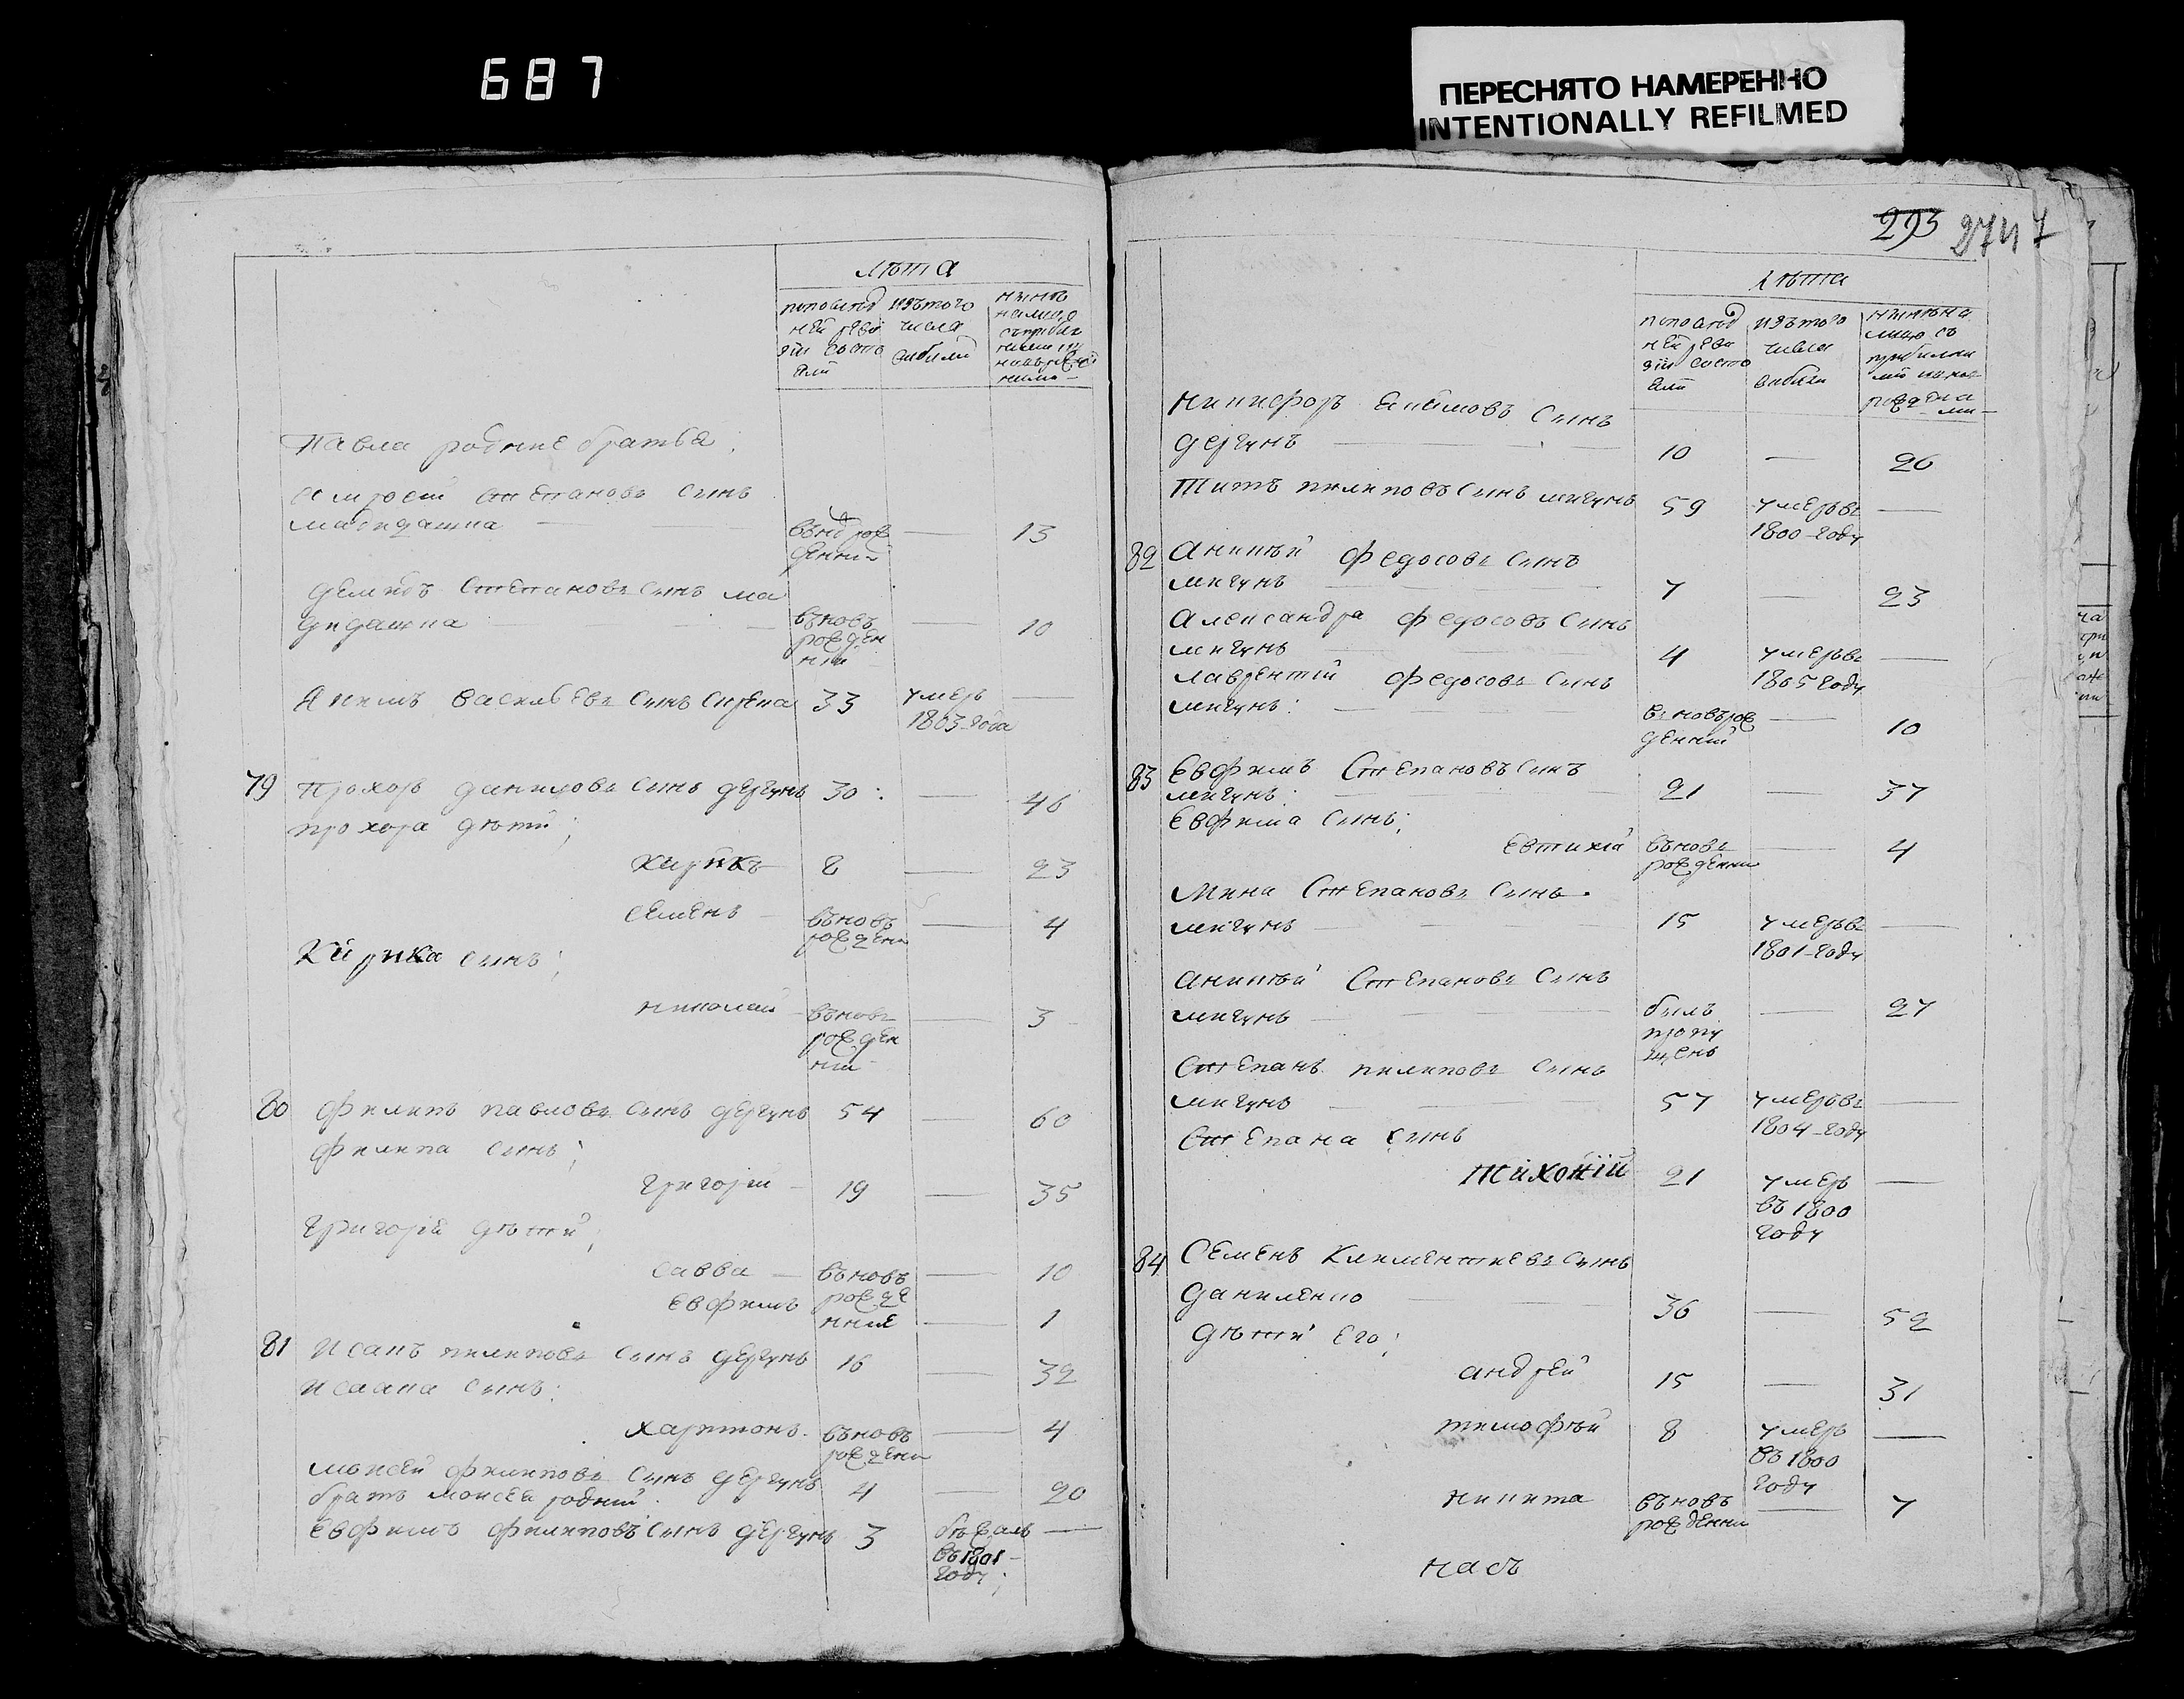 687
ПЕРЕСНЯТО НАМЕРЕННО
INTENTIONALLY REFILMED
лѣта
попослѣд
ней реви
зіи состо
яли
изътого
числа
выбыли
нынѣ
налицо
Павла родніе братья;
Амѵросій Степановъ сынъ
вънов рож
денній
— 13
Демидъ Степановъ сынъ ма
вновь
рожден
ній
— 10
Якимъ Васильевъ сынъ 33 умеръ —
1803-года
79 Прохоръ Даниловъ сынъ Дергунъ 30: — 46
Прохора дѣти;
Кирикъ 8 — 23
Семенъ — въновь — 4
рождени
Кирика сынъ;
Николай — въновь — 3
рожден
ній
80 Филипъ Павловъ сынъ Дергунъ 54 — 60
Филипа сынъ;
Григорій — 19 — 35
Григорія дѣти;
Савва — въновь — 10
Евфимъ рожде
нніе — 1
81 Исакъ Пилиповъ сынъ Дергунъ 16 — 32
Исаака сынъ:
Харитонъ. въновь — 4
рождени
Моисей Филиповъ сынъ Дергунъ 4 — 20
братъ Моисея родній.
Евфимъ Филиповъ сынъ Дергунъ 3 бѣжалъ —
въ 1801-
году;
293 274
лѣта
попослѣд
ней реви
зіи состо
яли
изътого
числа
выбыли
нынѣна
лицо съ
Никифоръ Якимовъ сынъ
Дергунъ — 10 — 26
Титъ Пилиповъ сынъ Мигунъ 59 умеръвъ —
1800-году
82 Аникѣй Федосовъ сынъ
Мигунъ — 7 — 23
Александра Федосовъ сынъ
Мигунъ — 4 умеръвъ —
1805 году
Лаврентій Федосовъ сынъ
Мигунъ: — вновьрож — 10
денній
83 Евфимъ Степановъ сынъ
Мигунъ: — 21 — 37
Евфима сынъ;
Евтихій въновь — 4
рожденни
Мина Степановъ сынъ.
Мигунъ — 15 умеръвъ —
1801-году
Аникѣй Степановъ сынъ
Мигунъ — былъ — 27
пропу
щенъ
Степанъ Пилиповъ сынъ
Мигунъ — 57 умеръвъ —
1804-году
Степана сынъ
Тихоній 21 умеръ —
въ 1800
году
84 Семенъ Климентіевъ сынъ
Даниленко — 36 — 52
Дѣти его;
Андрей 15 — 31
Тимофѣй 8 умеръ —
въ 1800
году
Никита въновь — 7
рожденни